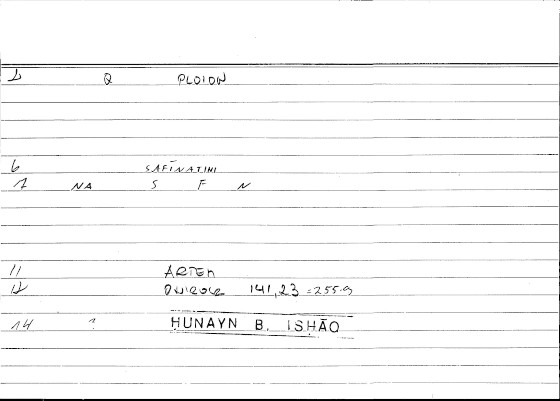 1 Q PLOION
6 SAFĪNATINI
7 NA S F N
11 ARTEM
12 ONIROCR 141,23 = 255.9
14 ? HUNAYN B. ISHĀQ